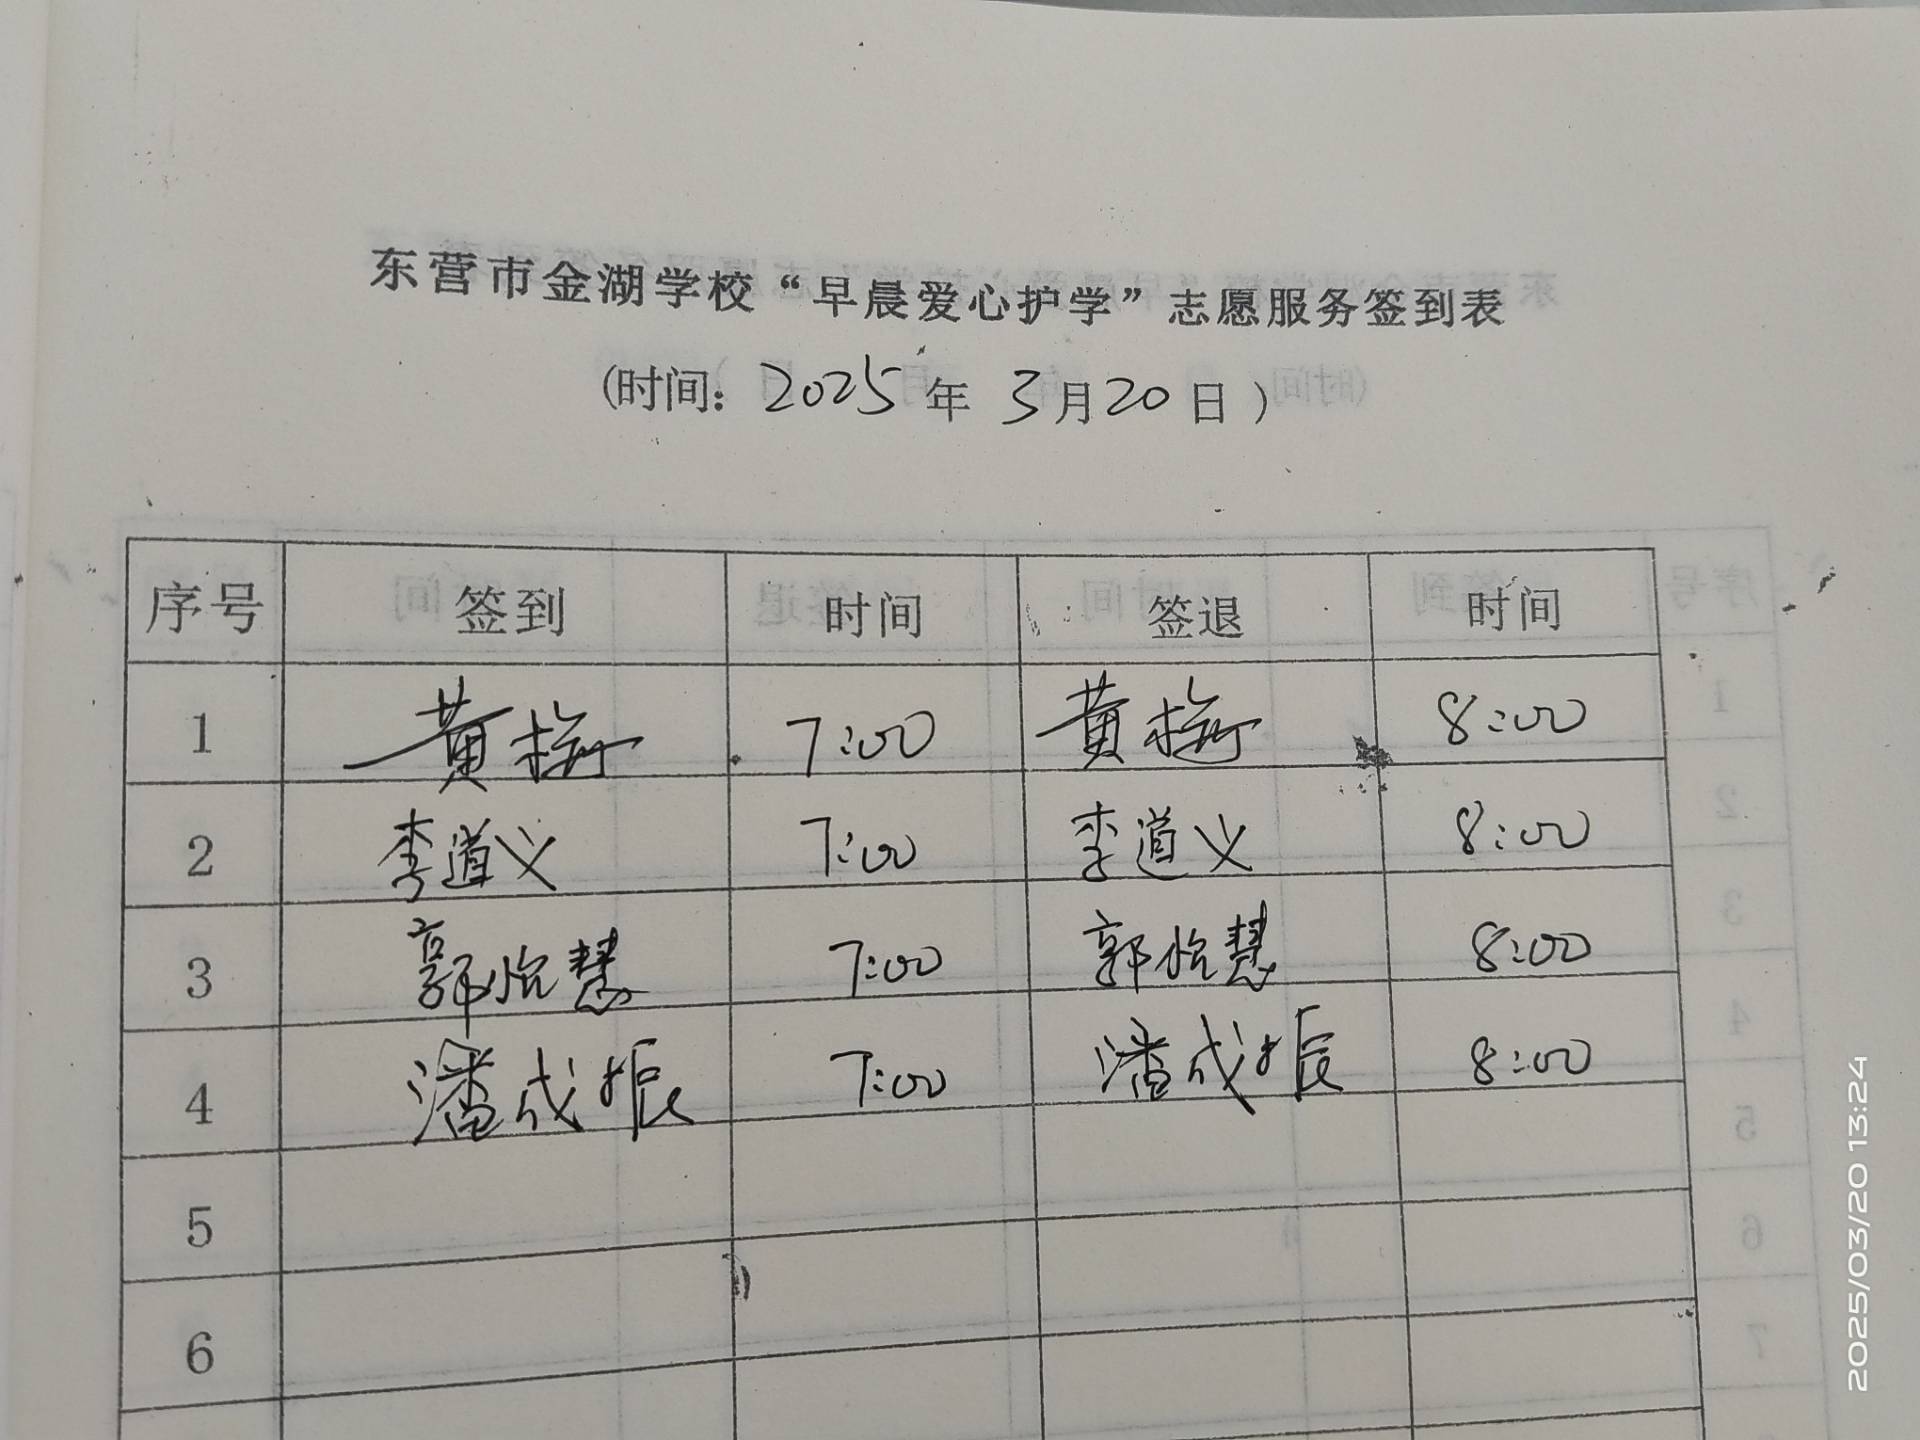 东营市金湖学校“早晨爱心护学”志愿服务签到表
(时间: 2025 年 3月20日)
序号 签到 时间 签退 时间
1 黄梅 7:00 黄梅 8:00
2 李道义 7:00 李道义 8:00
3 郭怡慧 7:00 郭怡慧 8:00
4 潘成振 7:00 潘成振 8:00
5
6
2025/03/20 13:24